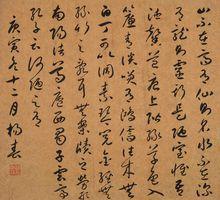 山不在高有仙則名水不在深
有龍則靈斯是陋室惟吾
德馨苔痕上階綠草色入
簾青談笑有鴻儒往來無
白丁可以調素琴閱金經無
絲竹之亂耳無案牘之勞形
南陽諸葛廬西蜀子雲亭
孔子云何陋之有
庚寅冬十二月